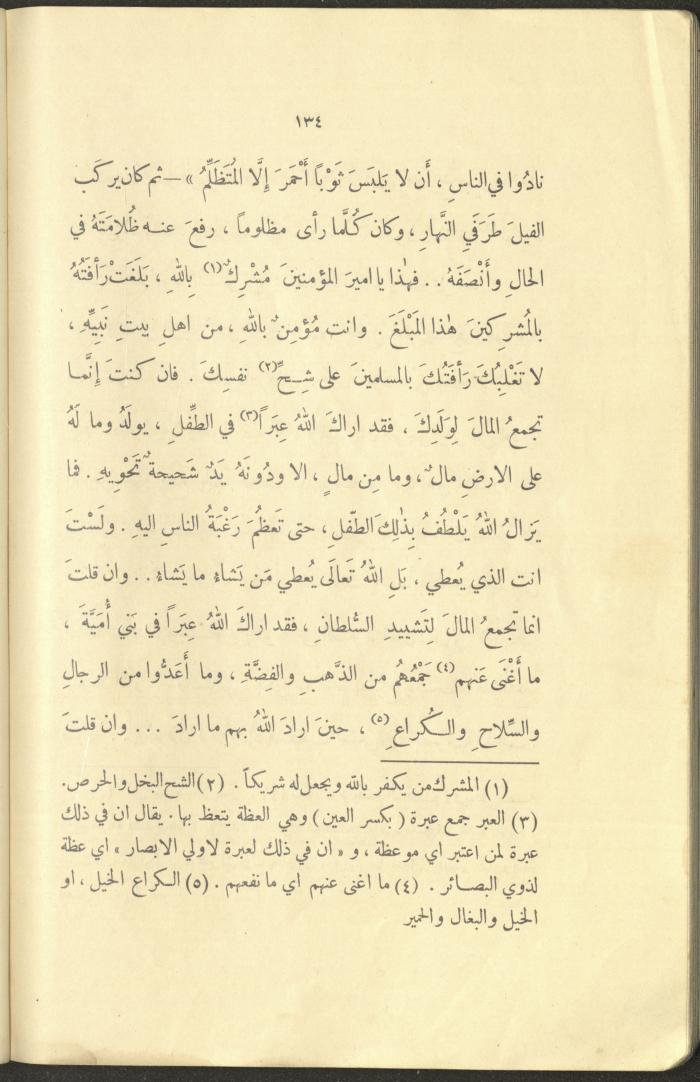 ١٣٤
نادُوا في الناسِ ، أَن لا يَلبَسَ ثَوْباً أَحْمَرَ إِلَّا المُتَظَلِّمُ » — ثم كان يركَب
الفيلَ طَرَفَيِ النَّهارِ ، وكان كُلَّما رأى مظلوماً ، رفعَ عنه ظُلامَتَهُ في
الحالِ وأَنْصَفَهُ . . فهٰذا يا اميرَ المؤمنينَ مُشْرِكٌ (١) بِاللهِ ، بَلَغَتْ رَأفَتُهُ
بالمُشرِكينَ هٰذا المَبْلَغَ . وانت مُؤمِنٌ باللهِ ، من اهلِ بيتِ نَبِيِّهِ ،
لا تَغْلِبُكَ رَأفَتُكَ بالمسلمينَ على شِحِّ (٢) نفسِكَ . فان كنتَ إِنَّما
تجمعُ المالَ لِوَلَدِكَ ، فقد اراكَ اللهُ عِبَراً (٣) في الطِّفلِ ، يولَدُ وما لَهُ
على الارضِ مالٌ ، وما مِن مالٍ ، الا ودُونَهُ يَدٌ شَحيحةٌ تَحْوِيهِ . فما
يَزالُ اللهُ يَلْطُفُ بِذٰلِكَ الطّفلِ ، حتى تَعظُمَ رَغْبَةُ الناسِ اليهِ . ولَسْتَ
انت الذي يُعطي ، بَلِ اللهُ تَعالَى يُعطي مَن يَشاءُ ما يَشاءُ . . وان قلتَ
انما تجمعُ المالَ لِتَشييدِ السُّلطانِ ، فقد اراكَ اللهُ عِبَراً في بَني أُمَيَّةَ ،
ما أَغْنَى عَنهم (٤) جَمْعُهُم من الذَّهبِ والفِضَّةِ ، وما أَعَدُّوا من الرجالِ
والسِّلاحِ والكُراعِ (٥) ، حينَ ارادَ اللهُ بهم ما ارادَ ... وان قلتَ
(١) المشرك من يكفر بالله ويجعل له شريكاً . (٢) الشح البخل والحرص .
(٣) العبر جمع عبرة ( بكسر العين ) وهي العظة يتعظ بها . يقال ان في ذلك
عبرة لمن اعتبر اي موعظة ، و « ان في ذلك لعبرة لاولي الابصار » اي عظة
لذوي البصائر . (٤) ما اغنى عنهم اي ما نفعهم . (٥) الكراع الخيل ، او
الخيل والبغال والحمير